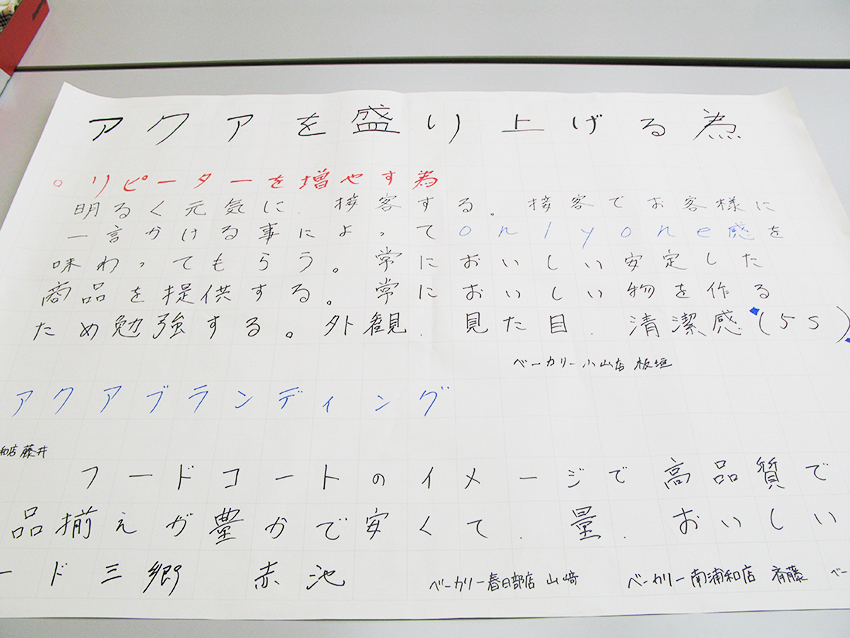 アクアを盛り上げる為
。リピーターを増やす為
明るく元気に、接客する。接客でお客様に
一言かける事によってonlyone感を
味わってもらう。常においしい安定した
商品を提供する。常においしい物を作る
ため勉強する。外観、見た目、清潔感(5S)
ベーカリー小山店 板垣
アクアブランディング
和店 藤井
フードコートのイメージで高品質で
品揃えが豊かで安くて、量、おいしい
ード三郷 赤池
ベーカリー春日部店 山﨑 ベーカリー南浦和店 斉藤 ベー